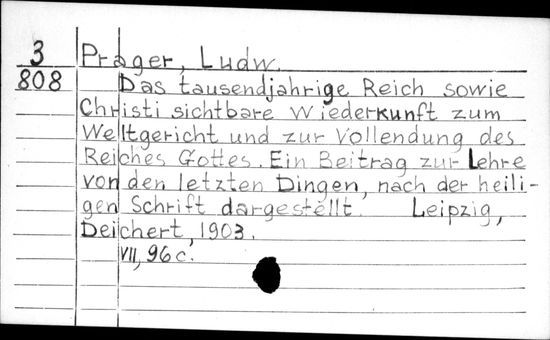 3 Prager, Ludw.
808 Das tausendjahrige Reich sowie
Christi sichtbare Wiederkunft zum
Weltgericht und zur Vollendung des
Reiches Gottes. Ein Beitrag zur Lehre
von den letzten Dingen, nach der heili-
gen Schrift dargestellt. Leipzig,
Deichert, 1903.
VII, 96 c.